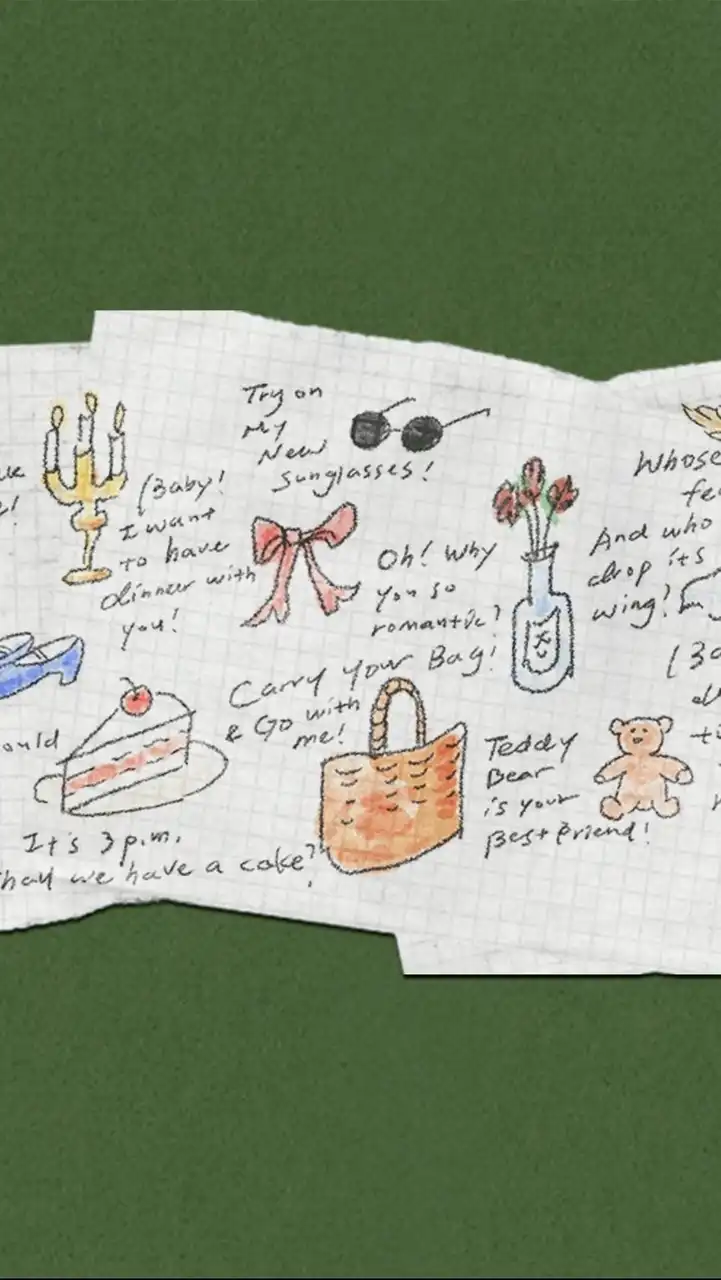 Baby!
I want
to have
dinner with
you!
Try on
My
New
sunglasses!
Oh! Why
you so
romantic?
Carry your Bag!
& Go with
me!
Whose
And who
drop its
wing?
ould
It's 3 p.m.
hall we have a cake?
Teddy
Bear
is your
Best Friend!